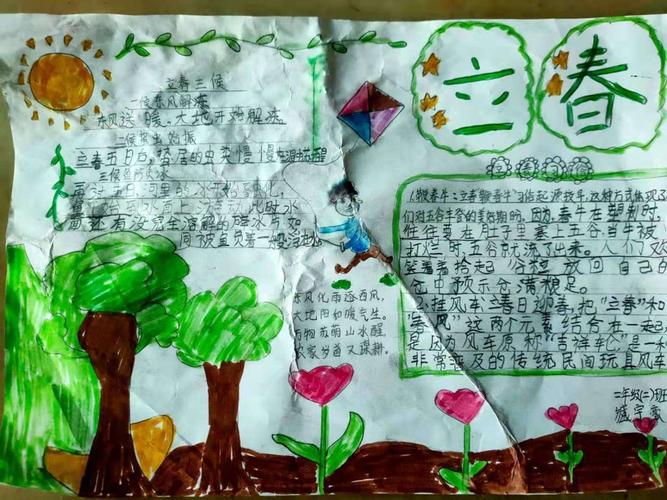 立春
立春三候
一候东风解冻
东风送暖,大地开始解冻。
二候蛰虫始振
立春五日后,蛰居的虫类慢慢在洞中苏醒
三候鱼陟负冰
再过五日,河里的冰开始溶化,
鱼开始到水面上游动,此时水
面还有没完全溶解的碎冰片,如
同被鱼负着一般浮在水
东风化雨逐西风,
大地阳和暖气生。
万物苏萌山水醒,
农家岁首又谋耕。
1.鞭春牛:立春鞭春牛
起源较早,这种方式体现
们对五谷丰登的美好期盼。因为春牛在塑制时,
往往要在肚子里塞上五谷,当牛被人
打烂时,五谷就流了出来。人们又
笑着拾起谷粒放回自己的
仓中,预示仓满粮足。
2.挂风车:立春日迎春,把"立春"和
"春风"这两个元素结合在一起
是因为风车原称"吉祥轮"是一种
非常普及的传统民间玩具风车
二年级(二)班